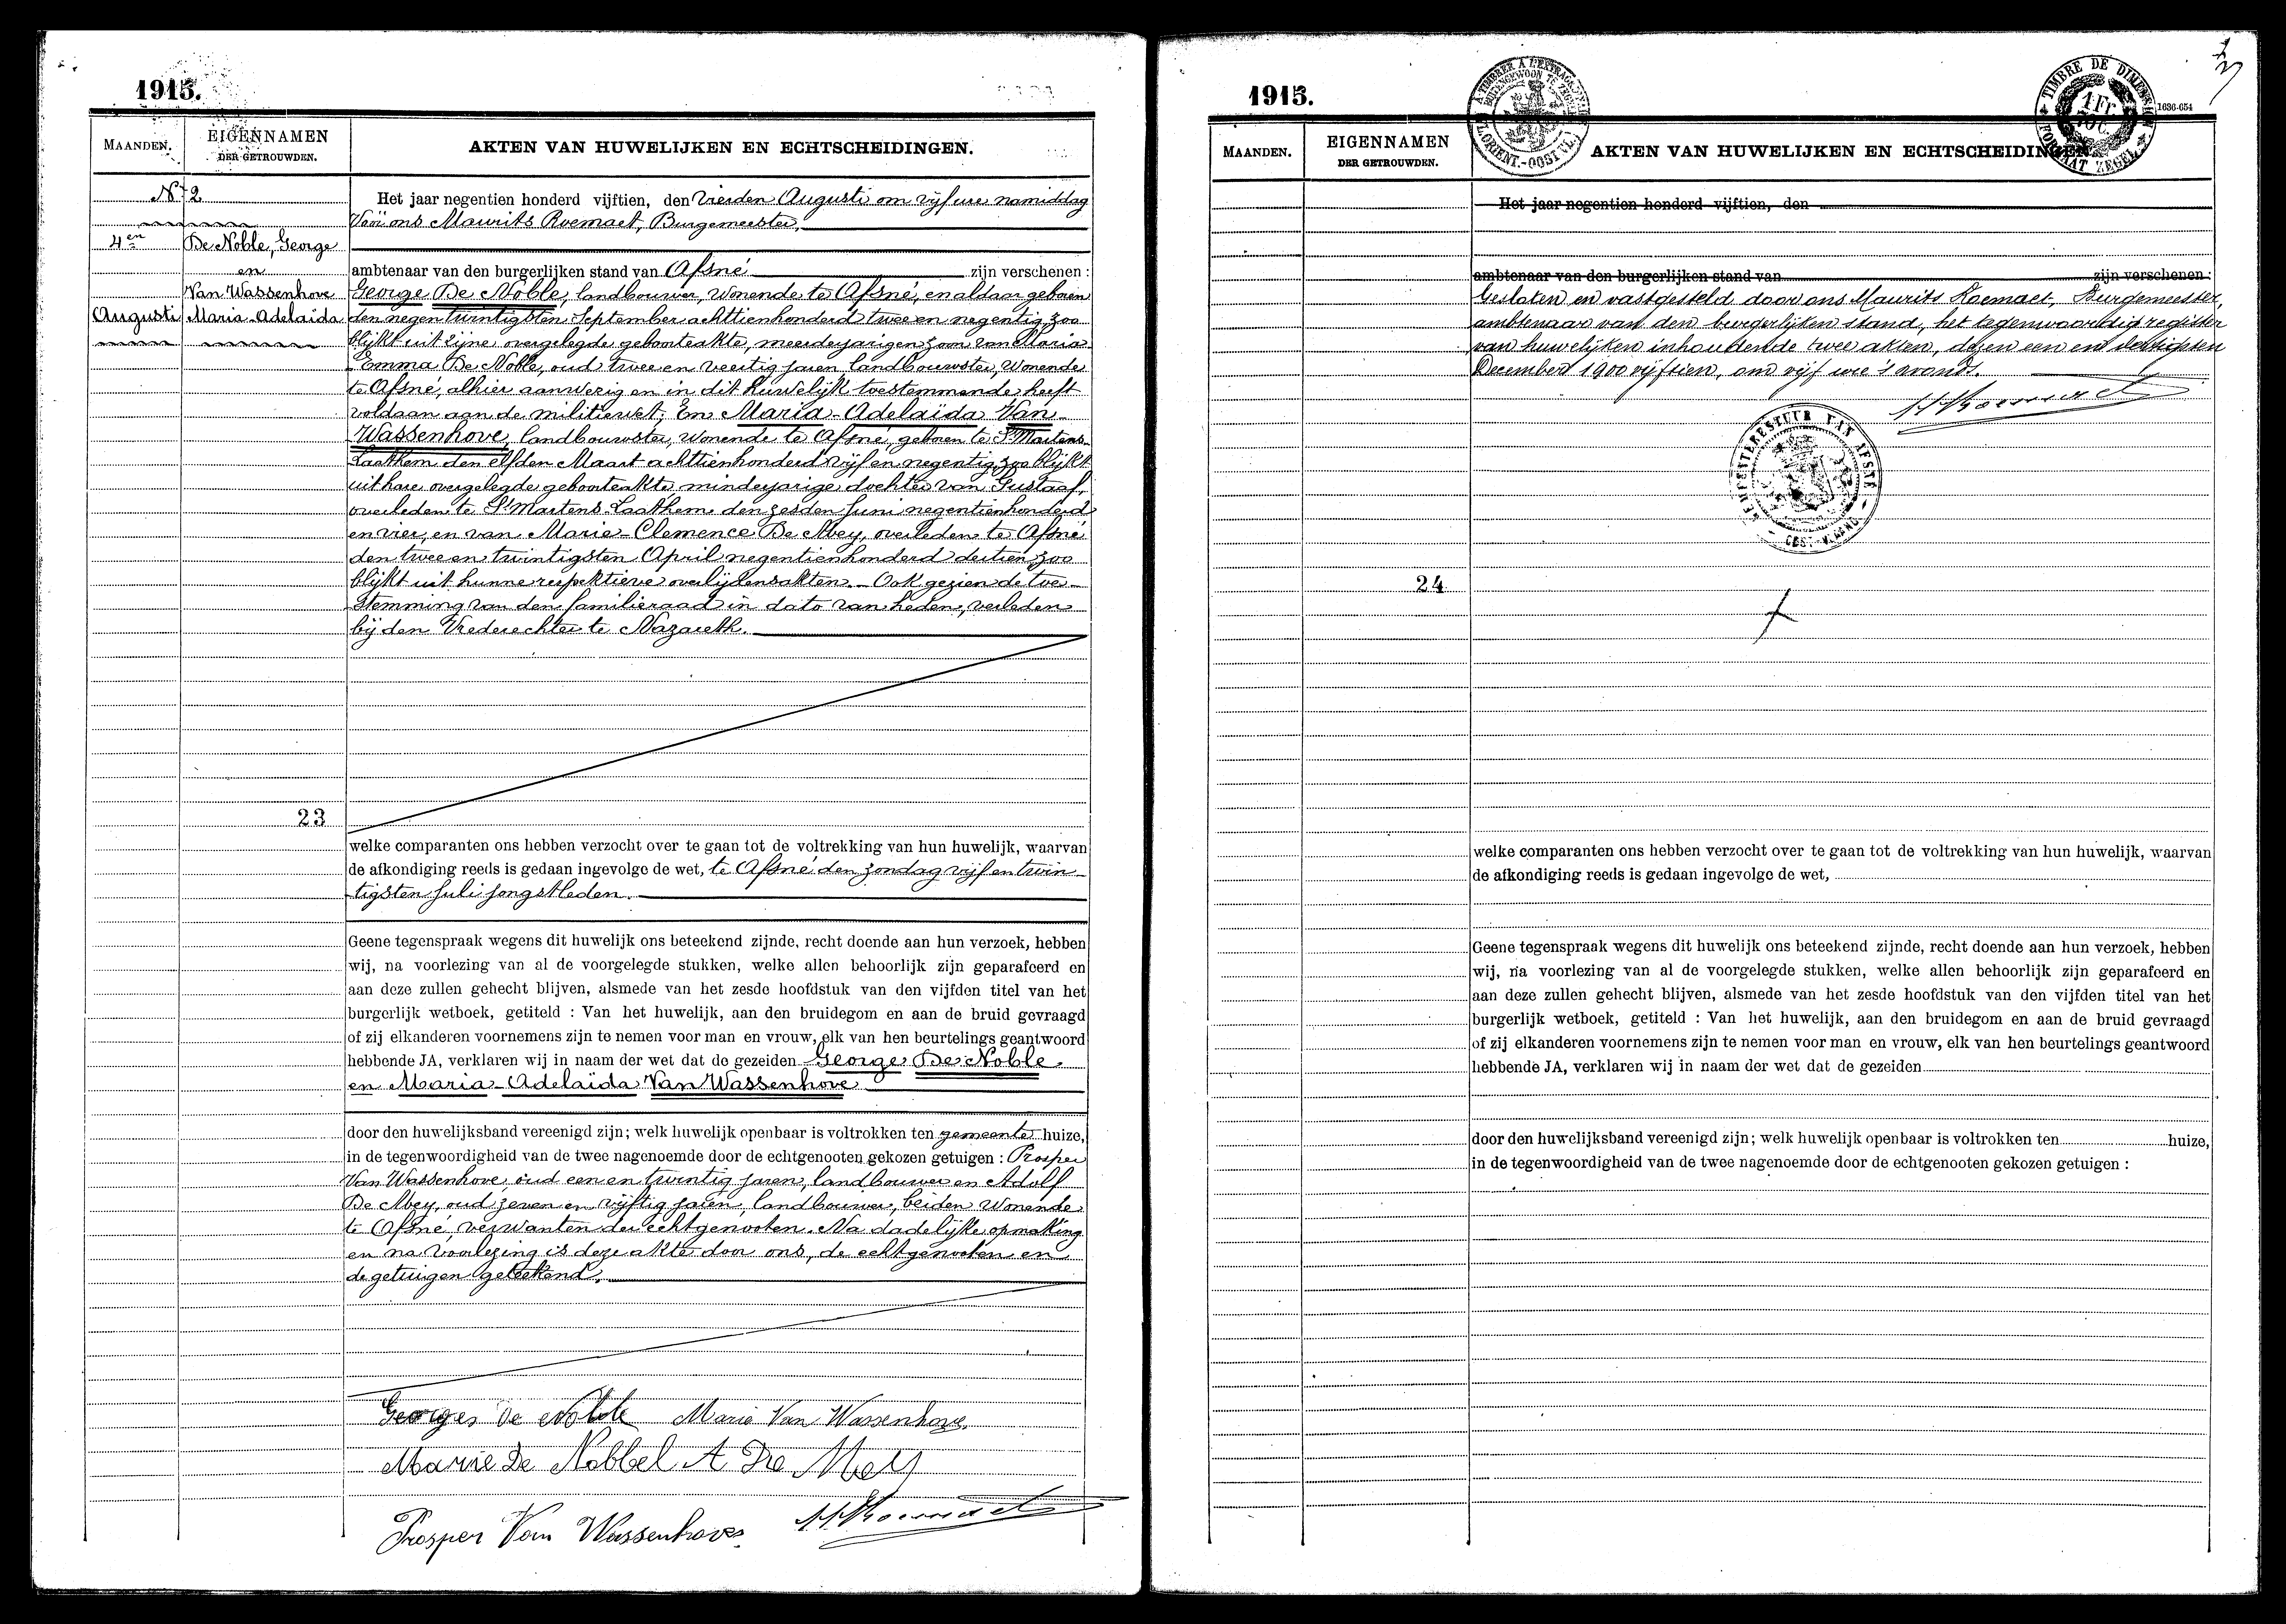 1915.
MAANDEN.
EIGENNAMEN
DER GETROUWDEN.
AKTEN VAN HUWELIJKEN EN ECHTSCHEIDINGEN.
Nr 2
4en
Augusti
De Noble, George
en
Van Wassenhove
Maria-Adelaïda
Het jaar negentien honderd vijftien, den vierden Augusti om vijf ure namiddag
Voor ons Maurits Roemaet, Burgemeester,
ambtenaar van den burgerlijken stand van Afsné zijn verschenen :
George De Noble, landbouwer, wonende te Afsné, en aldaar geboren
den negentwintigsten September achttienhonderd twee en negentig, zoo
blijkt uit zijne overgelegde geboorteakte, meerderjarigen zoon van Maria
Emma De Noble, oud twee en veertig jaren landbouwster, wonende
te Afsné, alhier aanwezig en in dit huwelijk toestemmende heeft
voldaan aan de militiewet; En Maria-Adelaïda Van
Wassenhove, landbouwster, wonende te Afsné, geboren te St Martens-
Laathem den elfden Maart achttienhonderd vijf en negentig, zoo blijkt
uit hare overgelegde geboorteakte minderjarige dochter van Gustaaf,
overleden te St Martens-Laathem den zesden Juni negentienhonderd
en vier, en van Marie-Clemence De Mey, overleden te Afsné
den twee en twintigsten April negentienhonderd dertien, zoo
blijkt uit hunne respektieve overlijdensakten. - Ook gezien de toe-
stemming van den familieraad in dato van heden, verleden
bij den Vrederechter te Nazareth.
23
welke comparanten ons hebben verzocht over te gaan tot de voltrekking van hun huwelijk, waarvan
de afkondiging reeds is gedaan ingevolge de wet, te Afsné den zondag vijf en twin-
tigsten Juli jongstleden.
Geene tegenspraak wegens dit huwelijk ons beteekend zijnde, recht doende aan hun verzoek, hebben
wij, na voorlezing van al de voorgelegde stukken, welke allen behoorlijk zijn geparafeerd en
aan deze zullen gehecht blijven, alsmede van het zesde hoofdstuk van den vijfden titel van het
burgerlijk wetboek, getiteld : Van het huwelijk, aan den bruidegom en aan de bruid gevraagd
of zij elkanderen voornemens zijn te nemen voor man en vrouw, elk van hen beurtelings geantwoord
hebbende JA, verklaren wij in naam der wet dat de gezeiden George De Noble
en Maria-Adelaïda Van Wassenhove
door den huwelijksband vereenigd zijn; welk huwelijk openbaar is voltrokken ten gemeente huize,
in de tegenwoordigheid van de twee nagenoemde door de echtgenooten gekozen getuigen : Prosper
Van Wassenhove, oud een en twintig jaren, landbouwer en Adolf
De Mey, oud zeven en vijftig jaren, landbouwer, beiden wonende
te Afsné, verwanten der echtgenooten. Na dadelijke opmaking
en na voorlezing is deze akte door ons, de echtgenooten en
de getuigen geteekend.
Georges De Noble Marie Van Wassenhove
Marie De Nobbel A De Mey
Prosper Van Wassenhove
1915.
TIMBRE DE DIMENSION
FORMAAT ZEGEL
1636-654
MAANDEN.
EIGENNAMEN
DER GETROUWDEN.
AKTEN VAN HUWELIJKEN EN ECHTSCHEIDINGEN
Het jaar negentien honderd vijftien, den
ambtenaar van den burgerlijken stand van zijn verschenen :
Gesloten en vastgesteld door ons Maurits Roemaet, Burgemeester,
ambtenaar van den burgerlijken stand, het tegenwoordig register
van huwelijken inhoudende twee akten, dezen een en dertigsten
December 1900 vijftien, om vijf ure 's avonds.
GEMEENTEBESTUUR VAN AFSNÉ
24
welke comparanten ons hebben verzocht over te gaan tot de voltrekking van hun huwelijk, waarvan
de afkondiging reeds is gedaan ingevolge de wet,
Geene tegenspraak wegens dit huwelijk ons beteekend zijnde, recht doende aan hun verzoek, hebben
wij, na voorlezing van al de voorgelegde stukken, welke allen behoorlijk zijn geparafeerd en
aan deze zullen gehecht blijven, alsmede van het zesde hoofdstuk van den vijfden titel van het
burgerlijk wetboek, getiteld : Van het huwelijk, aan den bruidegom en aan de bruid gevraagd
of zij elkanderen voornemens zijn te nemen voor man en vrouw, elk van hen beurtelings geantwoord
hebbende JA, verklaren wij in naam der wet dat de gezeiden
door den huwelijksband vereenigd zijn; welk huwelijk openbaar is voltrokken ten huize,
in de tegenwoordigheid van de twee nagenoemde door de echtgenooten gekozen getuigen :